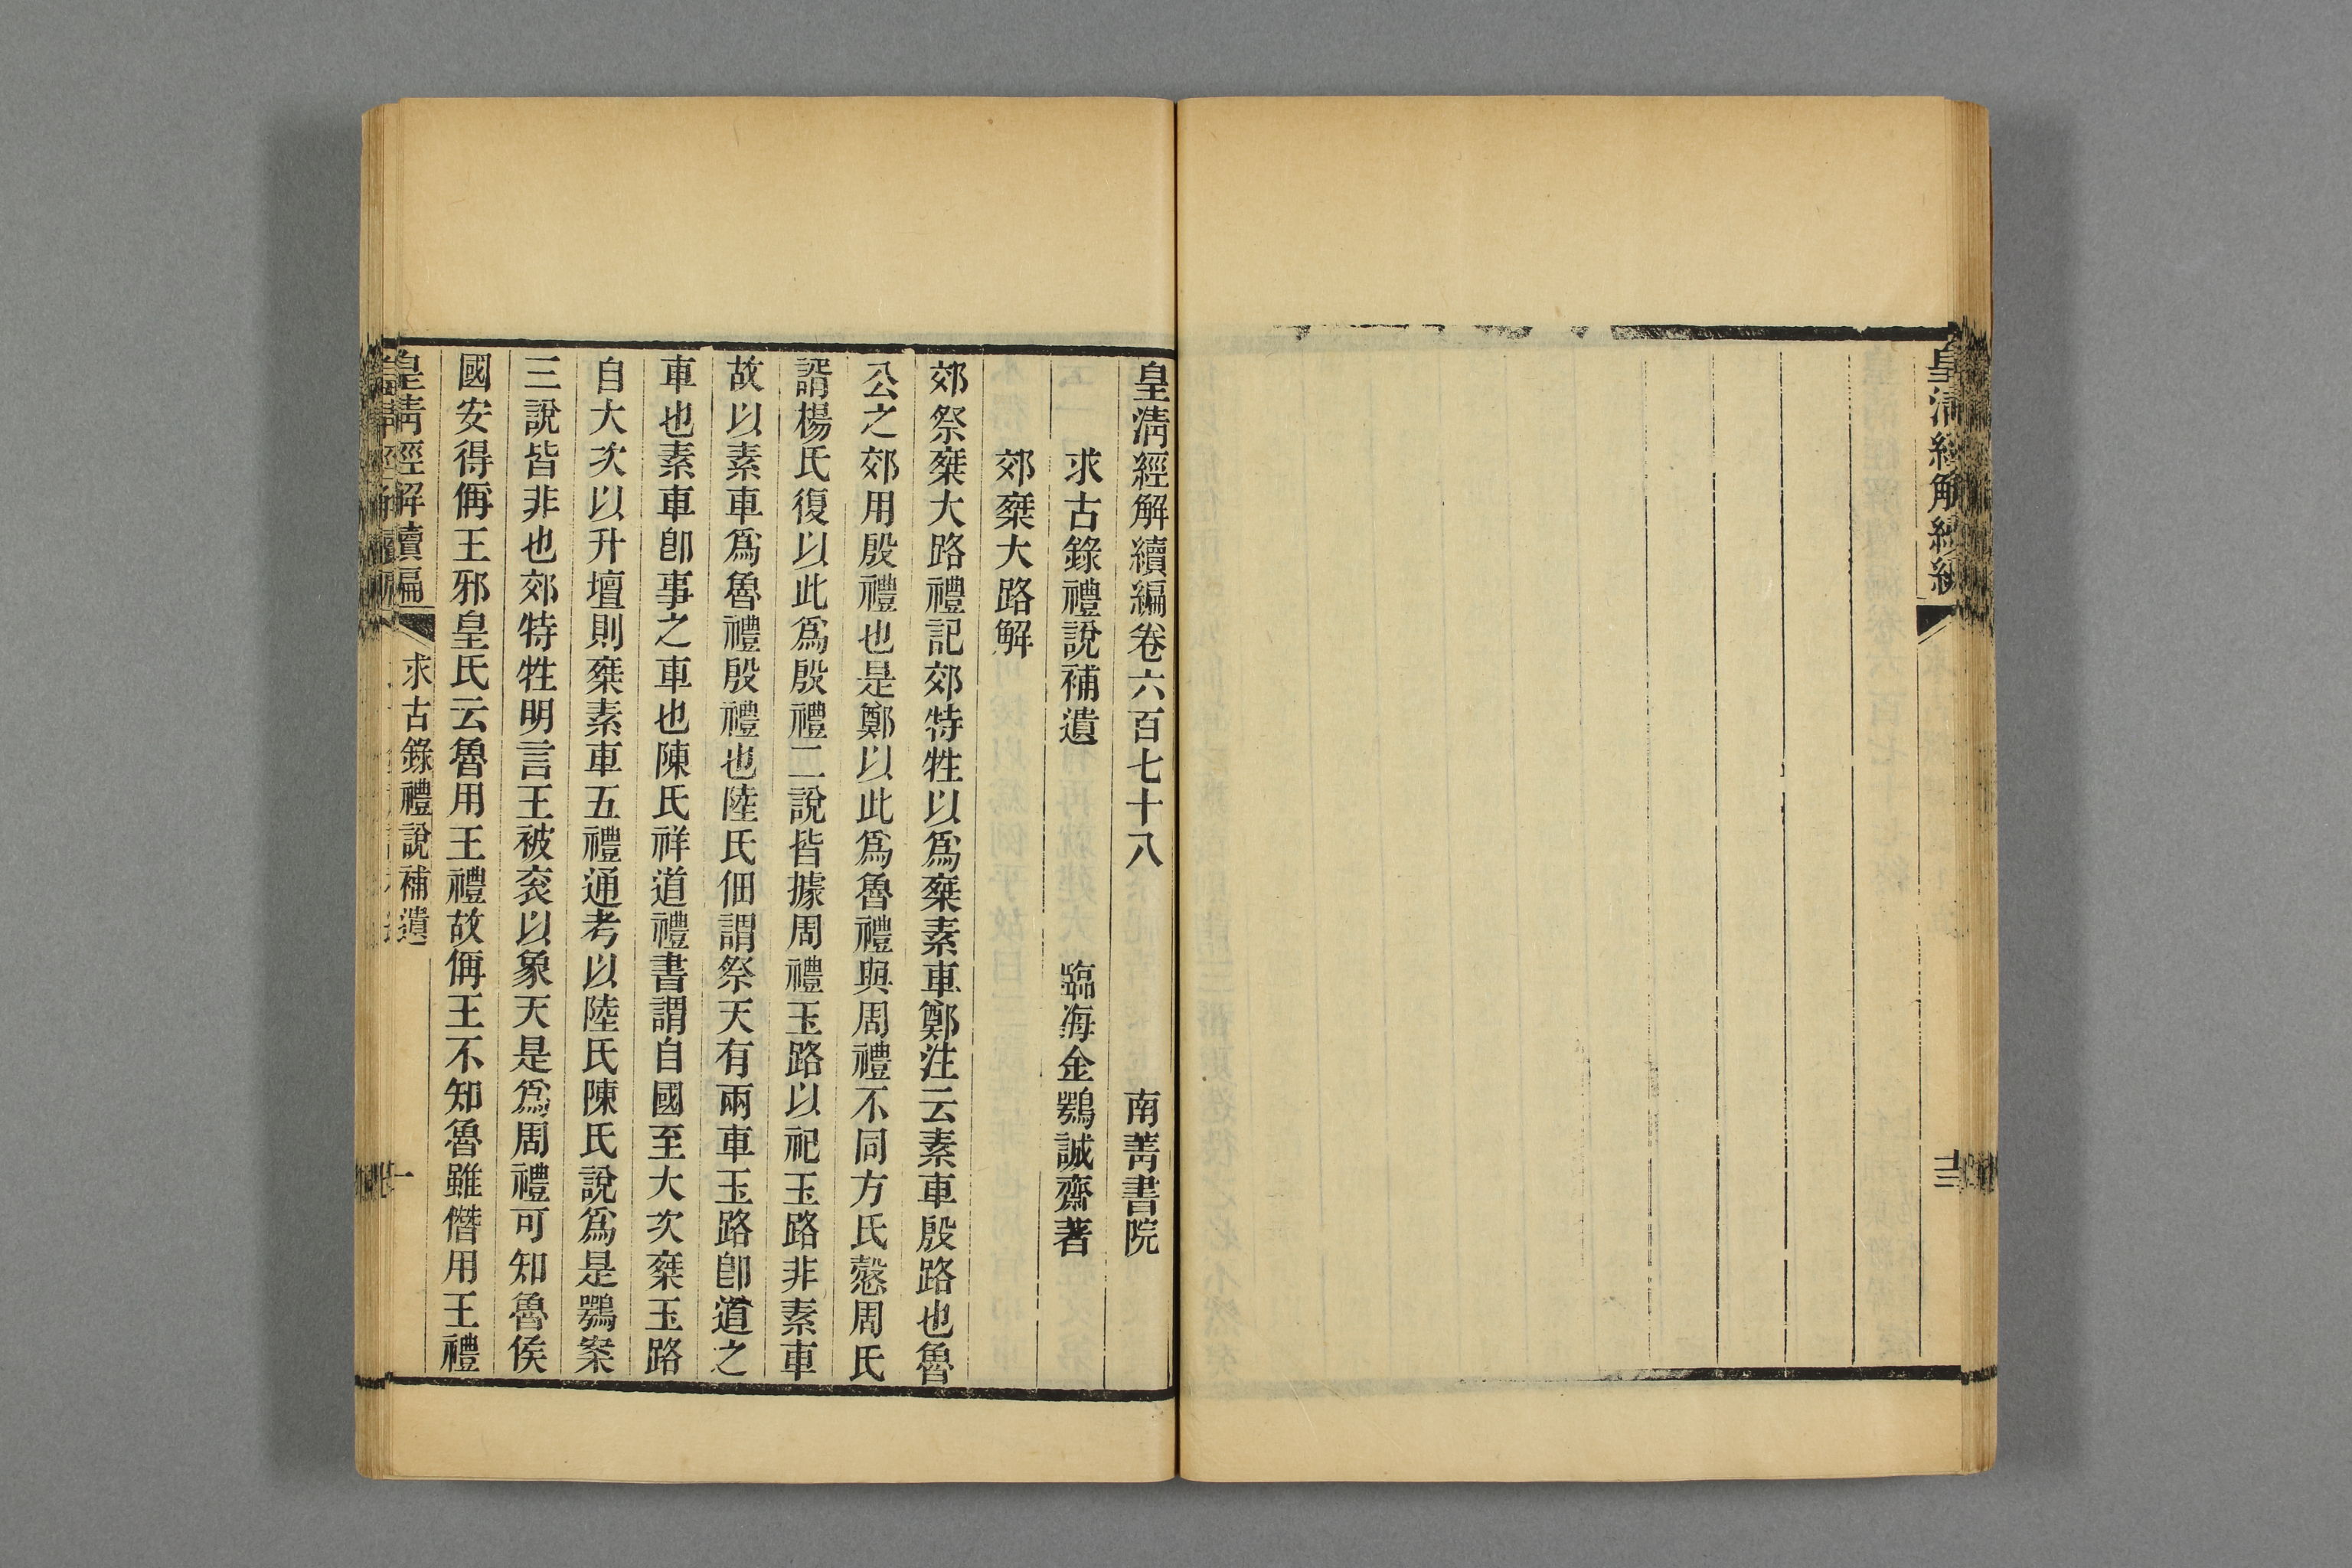 皇清經解續編
皇清經解續編卷六百七十八　南菁書院
求古錄禮說補遺　臨海金鶚誠齋著
郊椉大路解
郊祭椉大路禮記郊特牲以爲椉素車鄭注云素車殷路也魯
公之郊用殷禮也是鄭以此爲魯禮與周禮不同方氏慤周氏
諝楊氏復以此爲殷禮二說皆據周禮玉路以祀玉路非素車
故以素車爲魯禮殷禮也陸氏佃謂祭天有兩車玉路卽道之
車也素車卽事之車也陳氏祥道禮書謂自國至大次椉玉路
自大次以升壇則椉素車五禮通考以陸氏陳氏說爲是鶚案
三說皆非也郊特牲明言王被袞以象天是爲周禮可知魯侯
國安得偁王邪皇氏云魯用王禮故偁王不知魯雖僭用王禮
皇清經解續編　求古錄禮說補遺　一